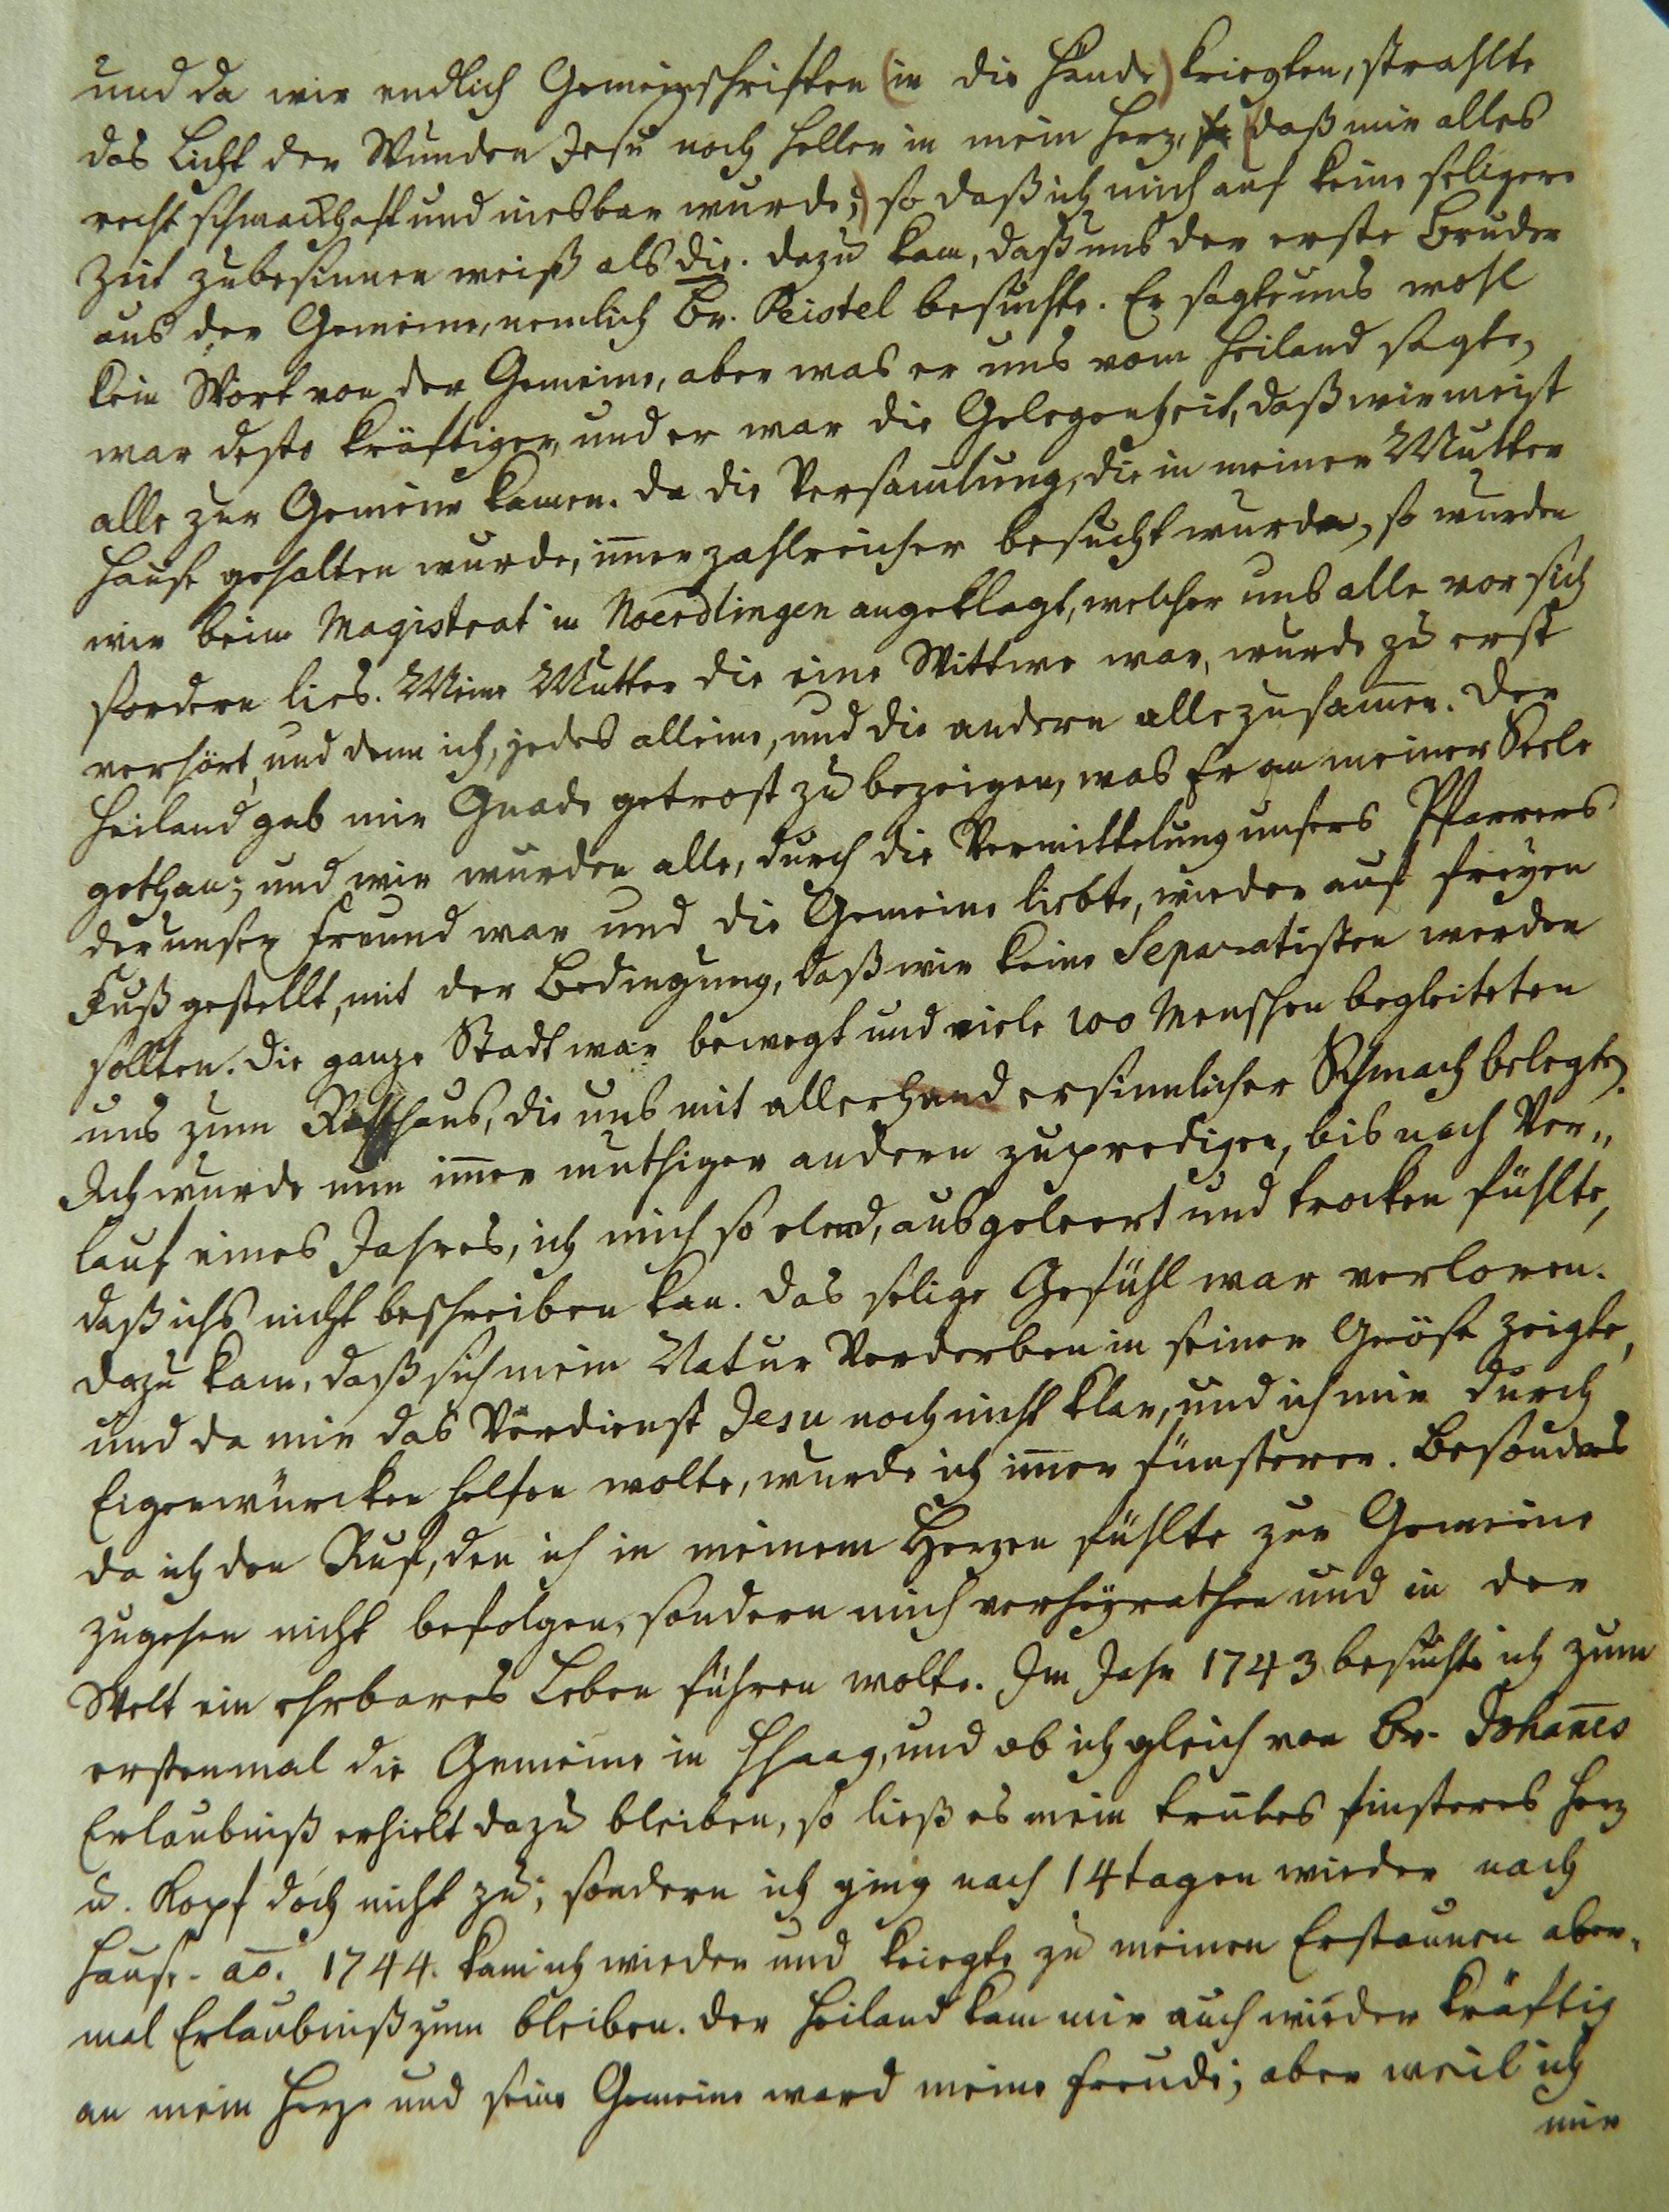 und da wir endlich Gemeinschriften (in die Hände) kriegten, strahlte
das Licht der Wunden Jesu noch heller in mein Herz, so (daß mir alles
recht schmackhaft und niesbar wurde;) so daß ich mich auf keine seligere
Zeit zubesinnen weiß als die. dazu kam, daß uns der erste Bruder
aus der Gemeine, nemlich Br. Peistel besuchte. Er sagte uns wohl
kein Wort von der Gemeine, aber was er uns vom Heiland sagte,
war desto kräftiger, und er war die Gelegenheit, daß wir meist
alle zur Gemeine kamen. da die Versamlung, die in meiner Mutter
Hause gehalten wurde, im̄er zahlreicher besucht wurde, so wurden
wir beim Magistrat in Noerdlingen angeklagt, welcher uns alle vor sich
fordern lies. Meine Mutter die eine Wittwe war, wurde zu erst
verhört, und denn ich, jedes alleine, und die andern alle zusam̄en. Der
Heiland gab mir Gnade getrost zu bezeigen, was Er an meiner Seele
gethan; und wir wurden alle, durch die Vermittelung unsers Pfarrers
der unser Freund war und die Gemeine liebte, wieder auf freyen
Fuß gestellt, mit der Bedingung, daß wir keine Separatisten werden
sollten. die ganze Stadt war bewegt und viele 100 Menschen begleiteten
uns zum Rathhaus, die uns mit allerhand ersinnlicher Schmach belegten.
Ich wurde nun im̄er muthiger andern zupredigen, bis nach Ver„
lauf eines Jahres, ich mich so elend, ausgeleert und trocken fühlte,
daß ichs nicht beschreiben kan. das selige Gefühl war verloren.
dazu kam, daß sich mein Natur Verderben in seiner Gröse zeigte,
und da mir das Verdienst Jesu noch nicht klar, und ich mir durch
Eigenwürcken helfen wolte, wurde ich im̄er fünsterer. Besonders
da ich den Ruf, den ich in meinem Herzen fühlte zur Gemeine
zugehen nicht befolgen, sondern mich verheyrathen und in der
Welt ein ehrbares Leben führen wolte. Im Jahr 1743 besuchte ich zum
erstenmal die Gemeine in HHaag, und ob ich gleich von Br. Johan̄es
Erlaubniß erhielt dazu bleiben, so ließ es mein trubes finsteres Herz
u. Kopf doch nicht zu; sondern ich ging nach 14 tagen wieder nach
Hause. ao. 1744. kam ich wieder und kriegte zu meinen Erstaunen aber„
mal Erlaubniß zum bleiben. der Heiland kam mir auch wieder kräftig
an mein Herze und seine Gemeine ward meine Freude; aber weil ich
mir